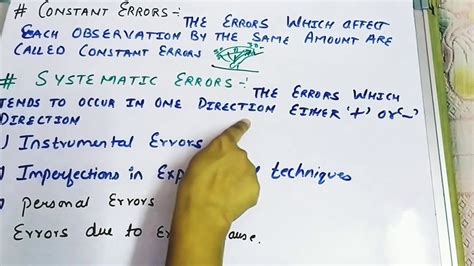 # CONSTANT ERRORS -: THE ERRORS WHICH AFFECT
EACH OBSERVATION BY THE SAME AMOUNT ARE
CALLED CONSTANT ERRORS
# SYSTEMATIC ERRORS -: THE ERRORS WHICH
TENDS TO OCCUR IN ONE DIRECTION EITHER '+' or '-'
DIRECTION
Instrumental Errors
Imperfections in techniques
personal Errors
Errors due to